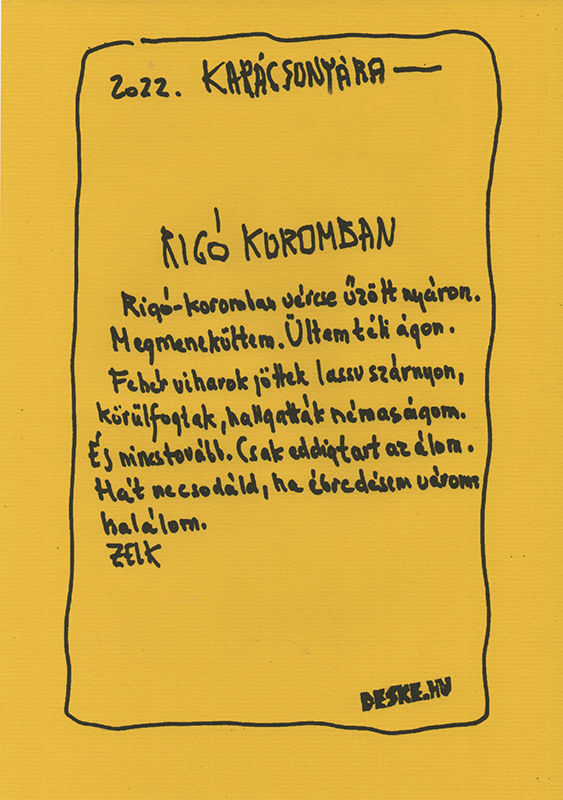 2022. KARÁCSONYÁRA —
RIGÓ KOROMBAN
Rigó-koromban vércse űzött nyáron.
Megmenekültem. Ültem téli ágon.
Fehér viharok jöttek lassu szárnyon,
körülfogtak, hallgatták némaságom.
És nincs tovább. Csak eddig tart az álom.
Hát ne csodáld, ha ébredésem várom
halálom.
ZELK
DESKE.HU